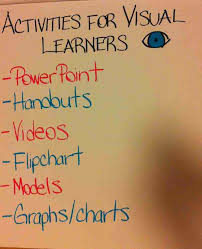 ACTIVITIES FOR VISUAL
LEARNERS
-PowerPoint
-Handouts
-Videos
-Flipchart
-Models
-Graphs/charts